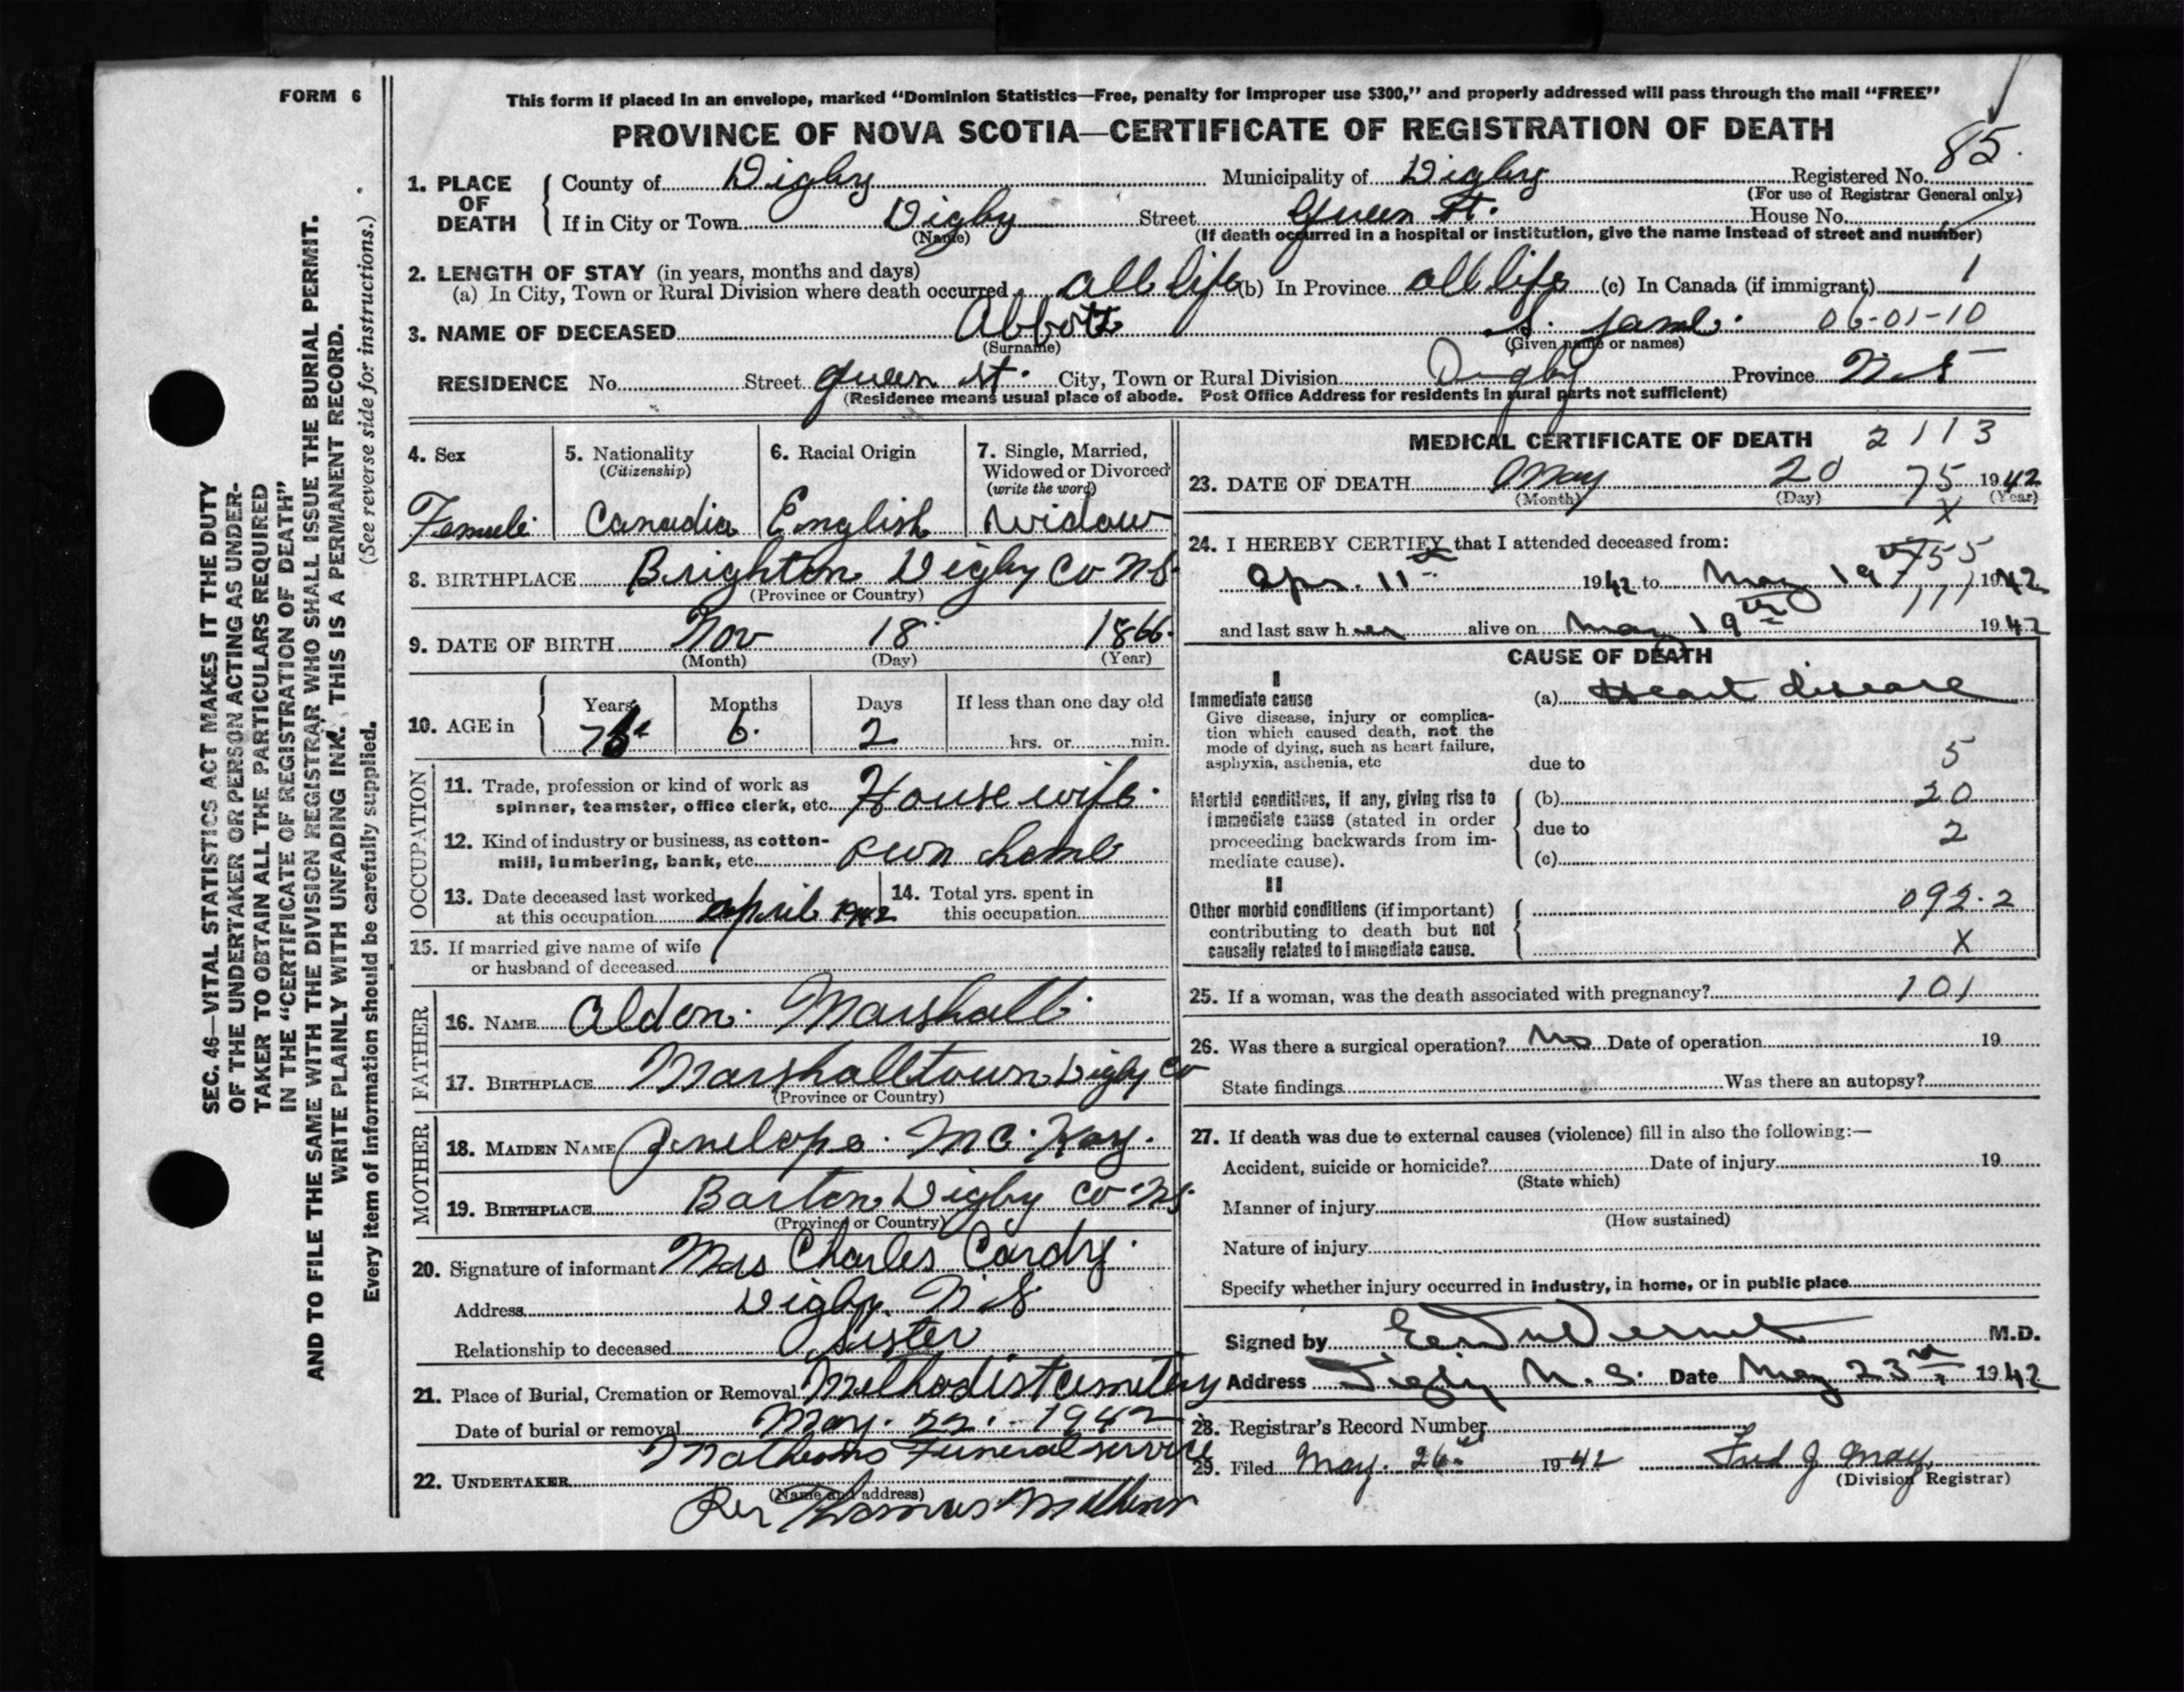 FORM 6
This form if placed in an envelope, marked “Dominion Statistics—Free, penalty for improper use $300,” and properly addressed will pass through the mail “FREE”
PROVINCE OF NOVA SCOTIA—CERTIFICATE OF REGISTRATION OF DEATH
85.
1. PLACE OF DEATH County of Digby Municipality of Digby Registered No.
(For use of Registrar General only)
If in City or Town Digby Street Queen St. House No.
(Name)
(If death occurred in a hospital or institution, give the name instead of street and number)
2. LENGTH OF STAY (in years, months and days)
(a) In City, Town or Rural Division where death occurred all life (b) In Province all life (c) In Canada (if immigrant) 1
3. NAME OF DECEASED Abbott S. 06-01-10
(Surname) (Given name or names)
RESIDENCE No. Street Queen St. City, Town or Rural Division Digby Province N S
(Residence means usual place of abode. Post Office Address for residents in rural parts not sufficient)
4. Sex 5. Nationality 6. Racial Origin 7. Single, Married,
(Citizenship) Widowed or Divorced
(write the word)
Female Canadia English Widow
8. BIRTHPLACE Brighton Digby Co N.S.
(Province or Country)
9. DATE OF BIRTH Nov 18 1866
(Month) (Day) (Year)
10. AGE in Years Months Days If less than one day old
6. 2 hrs. or min.
OCCUPATION
11. Trade, profession or kind of work as
spinner, teamster, office clerk, etc. House wife.
12. Kind of industry or business, as cotton-
mill, lumbering, bank, etc. own home
13. Date deceased last worked
at this occupation april 1942
14. Total yrs. spent in
this occupation
15. If married give name of wife
or husband of deceased
FATHER
16. NAME Alden. Marshall
17. BIRTHPLACE Marshalltown Digby Co
(Province or Country)
MOTHER
18. MAIDEN NAME Penelope. Mc.Kay.
19. BIRTHPLACE Barton Digby Co. N.S.
(Province or Country)
20. Signature of informant Mrs Charles Cardy.
Address Digby. N S
Relationship to deceased Sister
21. Place of Burial, Cremation or Removal Methodist cemetery
Date of burial or removal May. 22. 1942
Funeral service
22. UNDERTAKER
(Name and address)
Per Thomas
MEDICAL CERTIFICATE OF DEATH 2113
23. DATE OF DEATH May 20 75 1942
(Month) (Day) (Year)
X
24. I HEREBY CERTIFY that I attended deceased from:
755
Apr. 11th 1942 to May 19th 1942
111
and last saw her alive on May 19th 1942
CAUSE OF DEATH
I
Immediate cause (a) Heart disease
Give disease, injury or complica-
tion which caused death, not the
mode of dying, such as heart failure,
asphyxia, asthenia, etc due to 5
Morbid conditions, if any, giving rise to (b) 20
immediate cause (stated in order due to 2
proceeding backwards from im-
mediate cause). (c)
II
Other morbid conditions (if important) 092.2
contributing to death but not
causally related to immediate cause. X
25. If a woman, was the death associated with pregnancy? 101
26. Was there a surgical operation? No Date of operation 19
State findings Was there an autopsy?
27. If death was due to external causes (violence) fill in also the following:—
Accident, suicide or homicide? Date of injury 19
(State which)
Manner of injury
(How sustained)
Nature of injury
Specify whether injury occurred in industry, in home, or in public place
Signed by M.D.
Address Digby N.S. Date May 23rd 1942
28. Registrar's Record Number
29. Filed May. 26th 1942 Fred J May.
(Division Registrar)
SEC. 46—VITAL STATISTICS ACT MAKES IT THE DUTY
OF THE UNDERTAKER OR PERSON ACTING AS UNDER-
TAKER TO OBTAIN ALL THE PARTICULARS REQUIRED
IN THE “CERTIFICATE OF REGISTRATION OF DEATH”
AND TO FILE THE SAME WITH THE DIVISION REGISTRAR WHO SHALL ISSUE THE BURIAL PERMIT.
WRITE PLAINLY WITH UNFADING INK. THIS IS A PERMANENT RECORD.
(See reverse side for instructions.)
Every item of information should be carefully supplied.